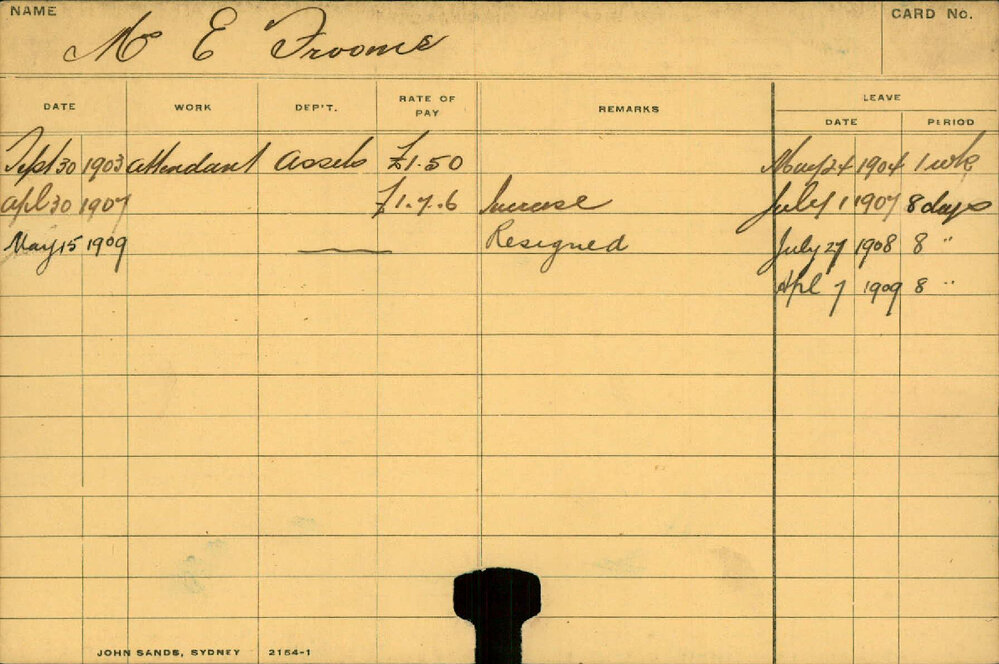 NAME
CARD No.
E Froome
DATE WORK DEP'T. RATE OF PAY REMARKS LEAVE
DATE PERIOD
Sept 30 1903 attendant £1.50 May 24 1904 1 wk
apl 30 1907 £1.7.6 Increase July 1 1907 8 days
May 15 1909 Resigned July 27 1908 8 "
Apl 7 1909 8 "
JOHN SANDS, SYDNEY 2154-1